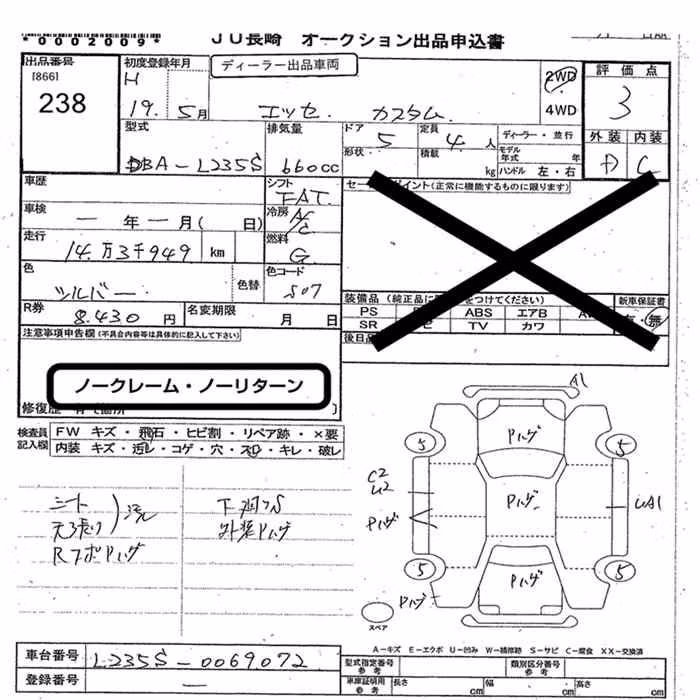 *0002009* JU長崎 オークション出品申込書
出品番号
[866]
238
初度登録年月
H
19. 5月
ディーラー出品車両
エッセ カスタム
2WD
4WD
評価点
3
外装 内装
D C
型式
DBA-L235S
排気量
660cc
ドア 5
形状
定員 4人
積載 kg
ディーラー・並行
モデル年式 年
ハンドル 左・右
車歴
シフト
FAT
セールスポイント(正常に機能するものに限ります)
車検
一年一月( 日)
冷房
A/C
走行
14万3千949 km
燃料
G
色
シルバー
色替
色コード
S07
R券
8.430円
名変期限
月 日
装備品(純正品に をつけてください)
新車保証書
有・無
PS ABS エアB AW
SR TV カワ
後日品
注意事項申告欄(不具合内容等は具体的に記入して下さい)
ノークレーム・ノーリターン
修復歴
検査員記入欄
FW キズ・飛石・ヒビ割・リペア跡・×要
内装 キズ・汚レ・コゲ・穴・スレ・キレ・破レ
シート
天張り
RスポPハゲ
下廻りS
外装Pハゲ
A1
Pハゲ
5 5
C2
U2
Pハゲ
Pハゲ
UA1
5 5
Pハゲ
Pハゲ
スペア
A-キズ E-エクボ U-凹み W-補修跡 S-サビ C-腐食 XX-交換済
車台番号
L235S-0069072
登録番号
一
型式指定番号 参考
類別区分番号 参考
車庫証明用 参考
長さ cm 幅 cm 高さ cm